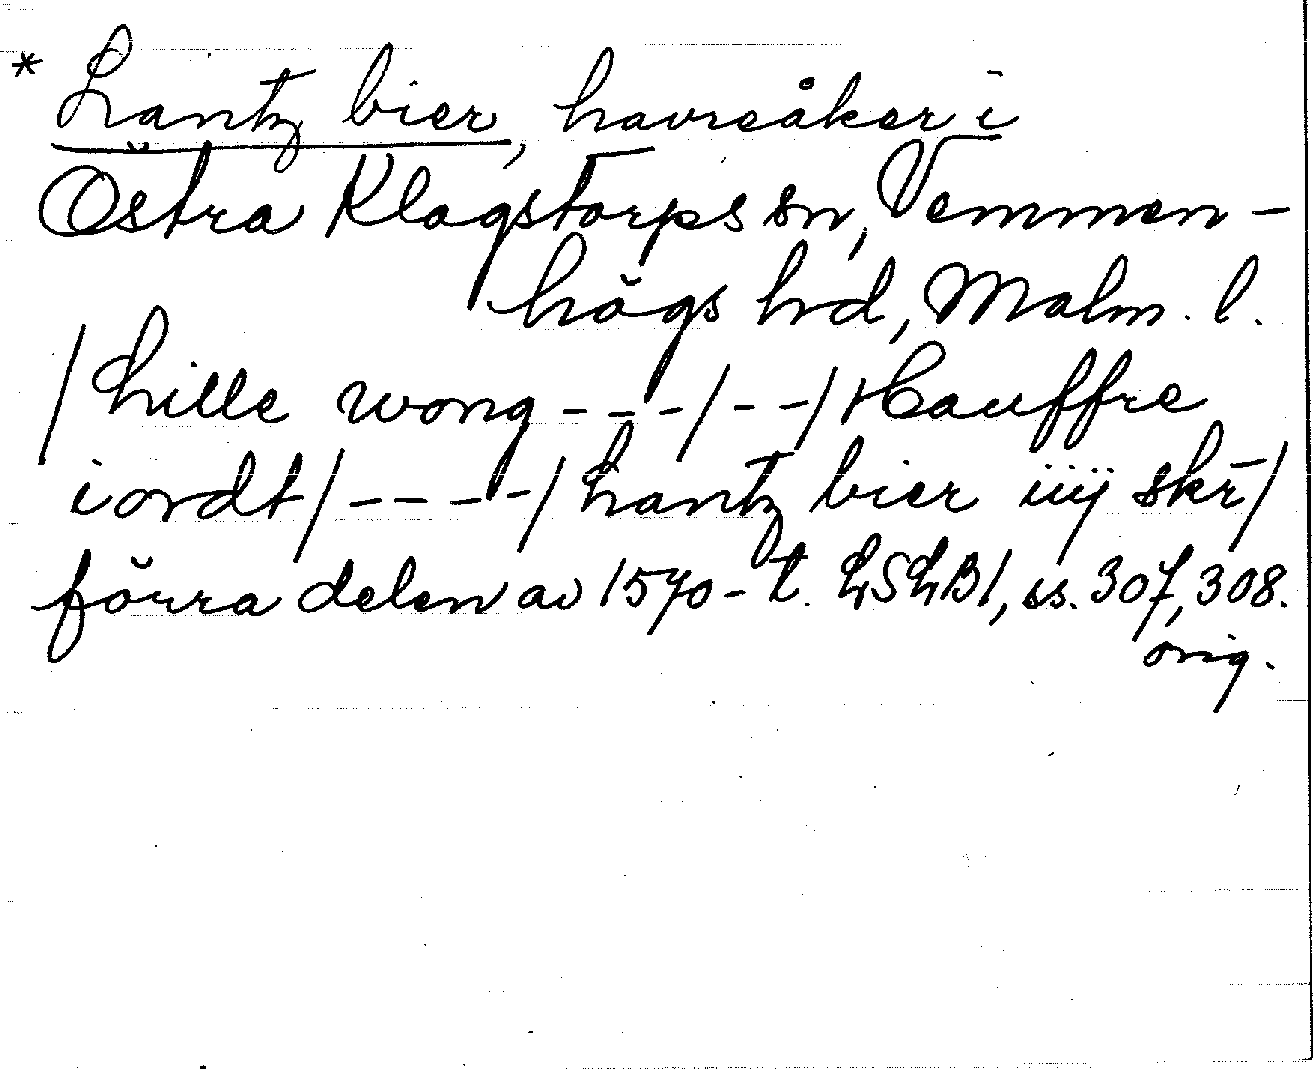 * Lantz bier, havreåker i
Östra Klagstorps sn, Vemmen-
högs hd, Malm. l.
/ Lille wong - - - / - - / Hauffre
iordt / - - - - / Lantz bier iiij skr̄ /
förra delen av 1570-t. LSLB1, ss. 307, 308.
orig.